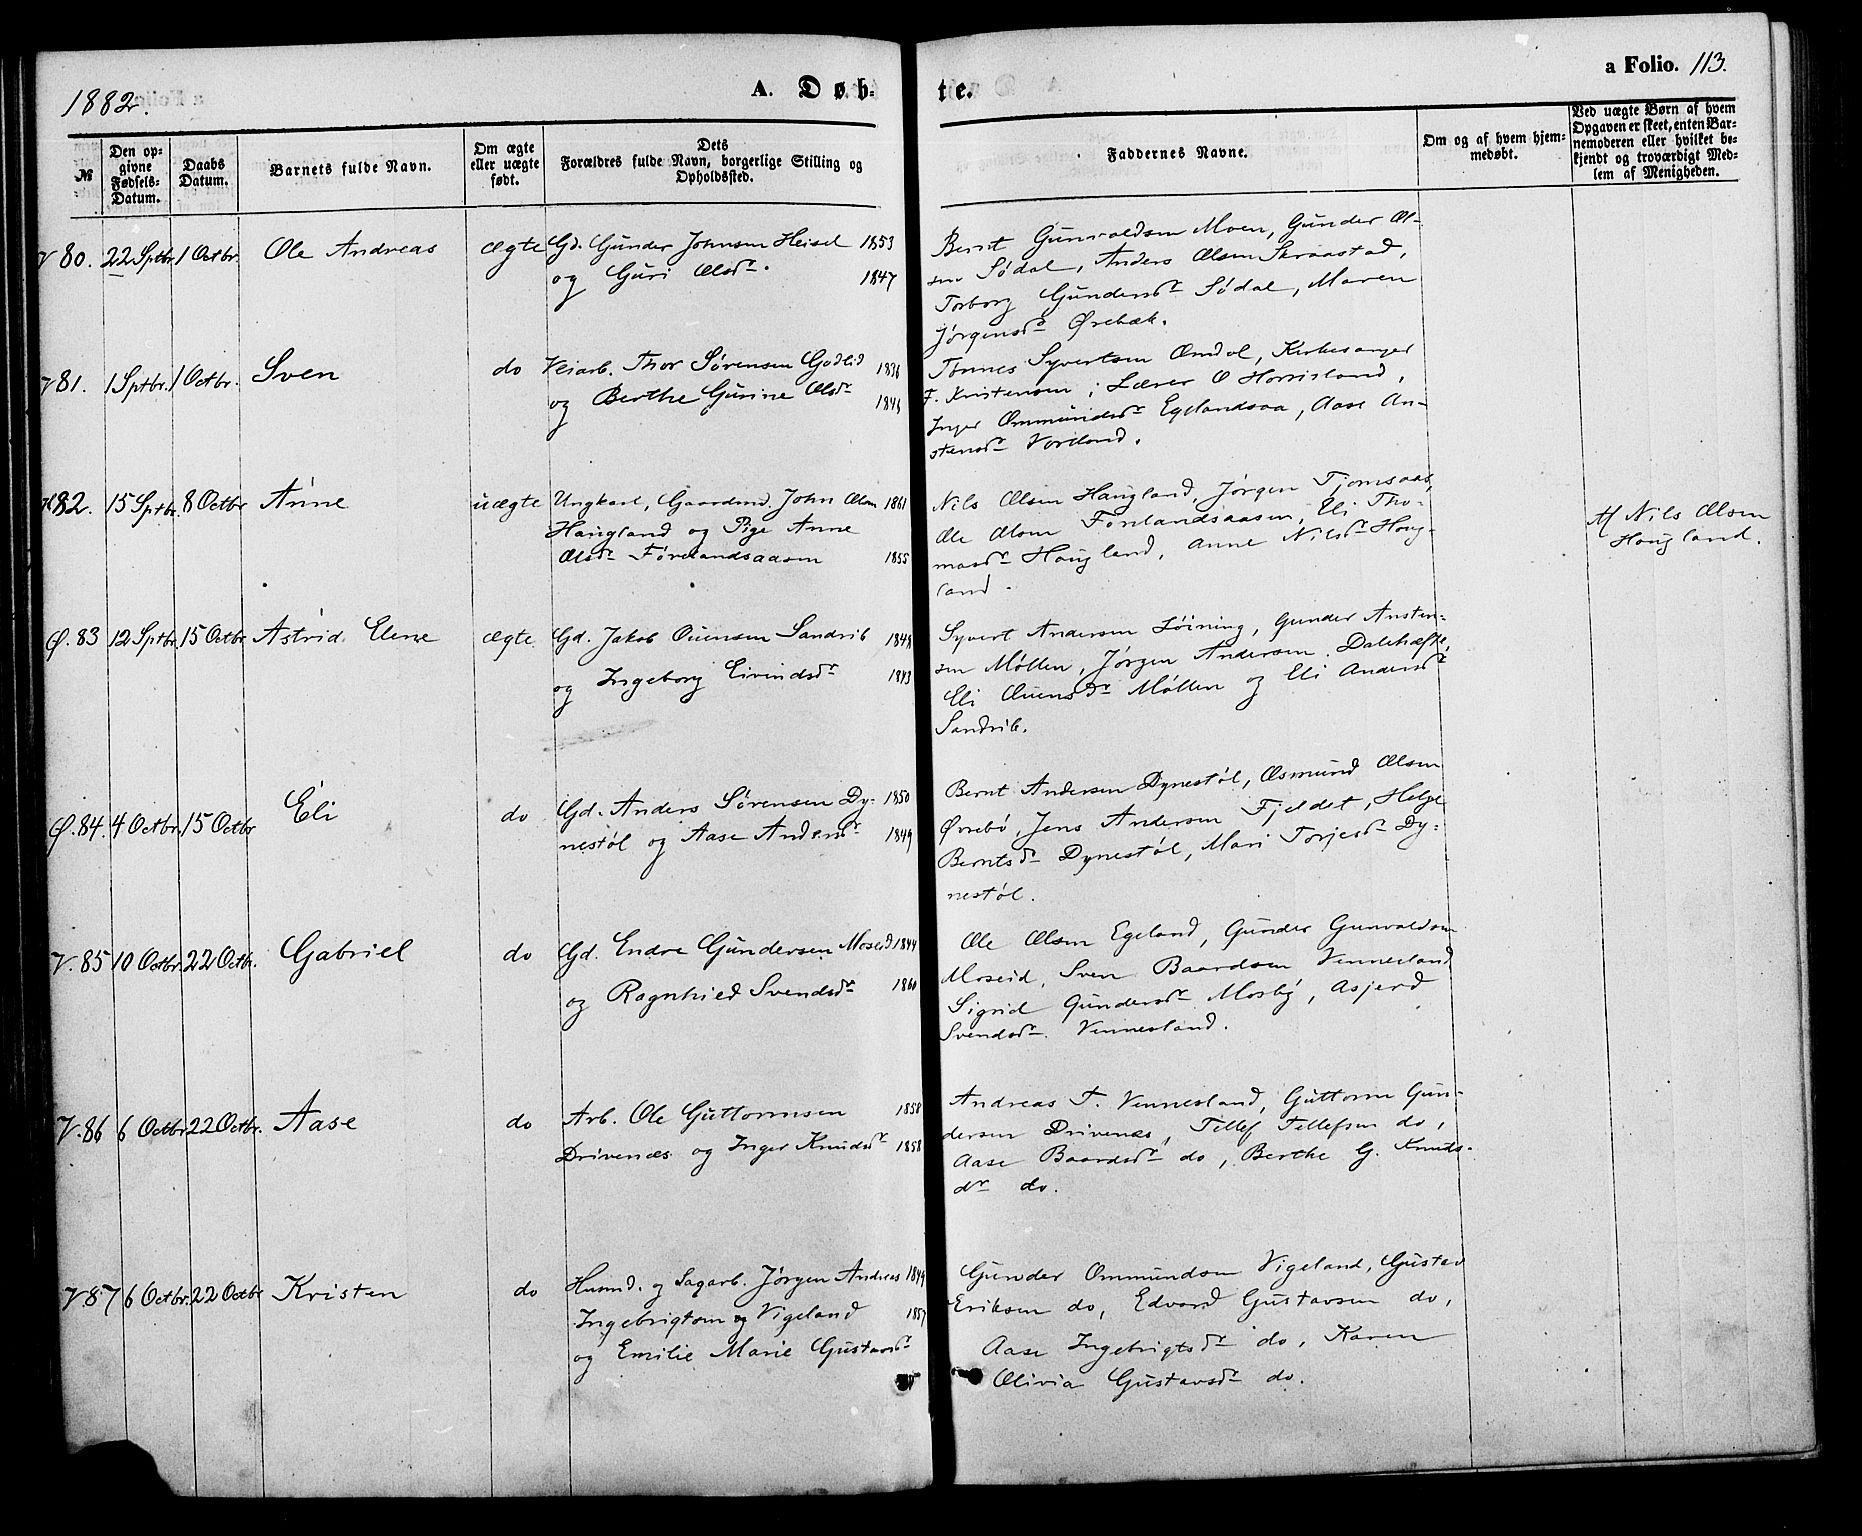 1882.
A. Døb-
te.
a Folio. 113.
№
Den op-
givne
Fødsels-
Datum.
Daabs
Datum.
Barnets fulde Navn.
Om ægte
eller uægte
født.
Dets
Forældres fulde Navn, borgerlige Stilling og
Opholdssted.
Faddernes Navne.
Om og af hvem hjem-
medøbt.
Ved uægte Børn af hvem
Opgaven er skeet, enten Bar-
nemoderen eller hvilket be-
kjendt og troværdigt Med-
lem af Menigheden.
V 80. 22 Sptbr. 1 Octbr. Ole Andreas ægte Gd. Gunder Johnsen Heisel 1853
og Guri Olsdr. 1847
Bernt Gunvaldsen Moen, Gunder Ol-
sen Sødal, Anders Olsen Skraastad,
Torborg Gundersdr Sødal, Maren
Jørgensdr Ørebæk.
V 81. 1 Sptbr. 1 Octbr. Sven do Veiarb. Thor Sørensen Godlid 1836
og Berthe Gurine Olsdr
Tønnes Syvertsen Omdal, Kirkesanger
F. Kristensen, Lærer O Horrisland,
Inger Ommundsdr Egelandsaa, Aase An-
stensdr Vorland.
82. 15 Sptbr. 8 Octbr Anne uægte Ungkarl, Gaardmd. John Olsen 1861
Haugland og Pige Anne
Olsdr Førelandsaasen 1855
Nils Olsen Haugland, Jørgen Tjomsaas,
Ole Olsen Forelandsaasen, Eli Tho-
masdr Haugland, Anne Nilsdr Haug-
land.
Af Nils Olsen
Haugland.
Ø. 83 12 Sptbr. 15 Octbr Astrid Elene ægte Gd. Jakob Ouensen Sandrib
og Ingeborg Eivindsdr 1843
Syvert Andersen Løining, Gunder Ansten-
sen Møllen, Jørgen Andersen Dalehæfte,
Eli Ouensdr Møllen og Eli Andersdr
Sandrib.
Ø. 84. 4 Octbr. 15 Octbr Eli do Gd. Anders Sørensen Dy- 1850
nestøl og Aase Andersdr 1849
Bernt Andersen Dynestøl, Osmund Olsen
Øvrebø, Jens Andersen Fjeldet, Helge
Berntsdr Dynestøl, Mari Torjesdr Dy-
nestøl.
V. 85 10 Octbr. 22 Octbr. Gabriel do Gd. Endre Gundersen Moseid 1844
og Ragnhild Svendsdr 1860
Ole Olsen Egeland, Gunder Gunvaldsen
Moseid, Sven Baardsen Vennesland
Sigrid Gundersdr Mosby, Asjerd
Svendsdr. Vennesland.
V. 86 6 Octbr 22 Octbr. Aase do Arb. Ole Guttormsen 1858
Drivenæs og Inger Knudsdr 1858
Andreas T. Vennesland, Guttorm Gun-
dersen Drivenæs, Tellef Tellefsen do,
Aase Baardsdr do, Berthe G. Knuds-
dr do.
V. 87 6 Octbr. 22 Octbr Kristen do Husmd. og Sagarb. Jørgen Andreas 1849
Ingebrigtsen Vigeland 1857
og Emilie Marie Gustavsdr
Gunder Ommundsen Vigeland, Gustav
Eriksen do, Edvard Gustavsen do,
Aase Ingebrigtsdr do, Karen
Olivia Gustavsdr do.